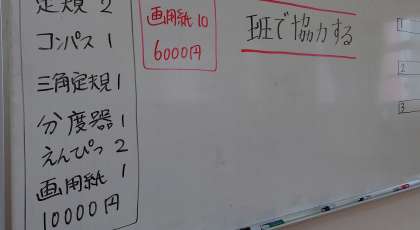 定規 2
コンパス 1
三角定規 1
分度器 1
えんぴつ 2
画用紙 1
10000円
画用紙 10
6000円
班で協力する
1
2
3